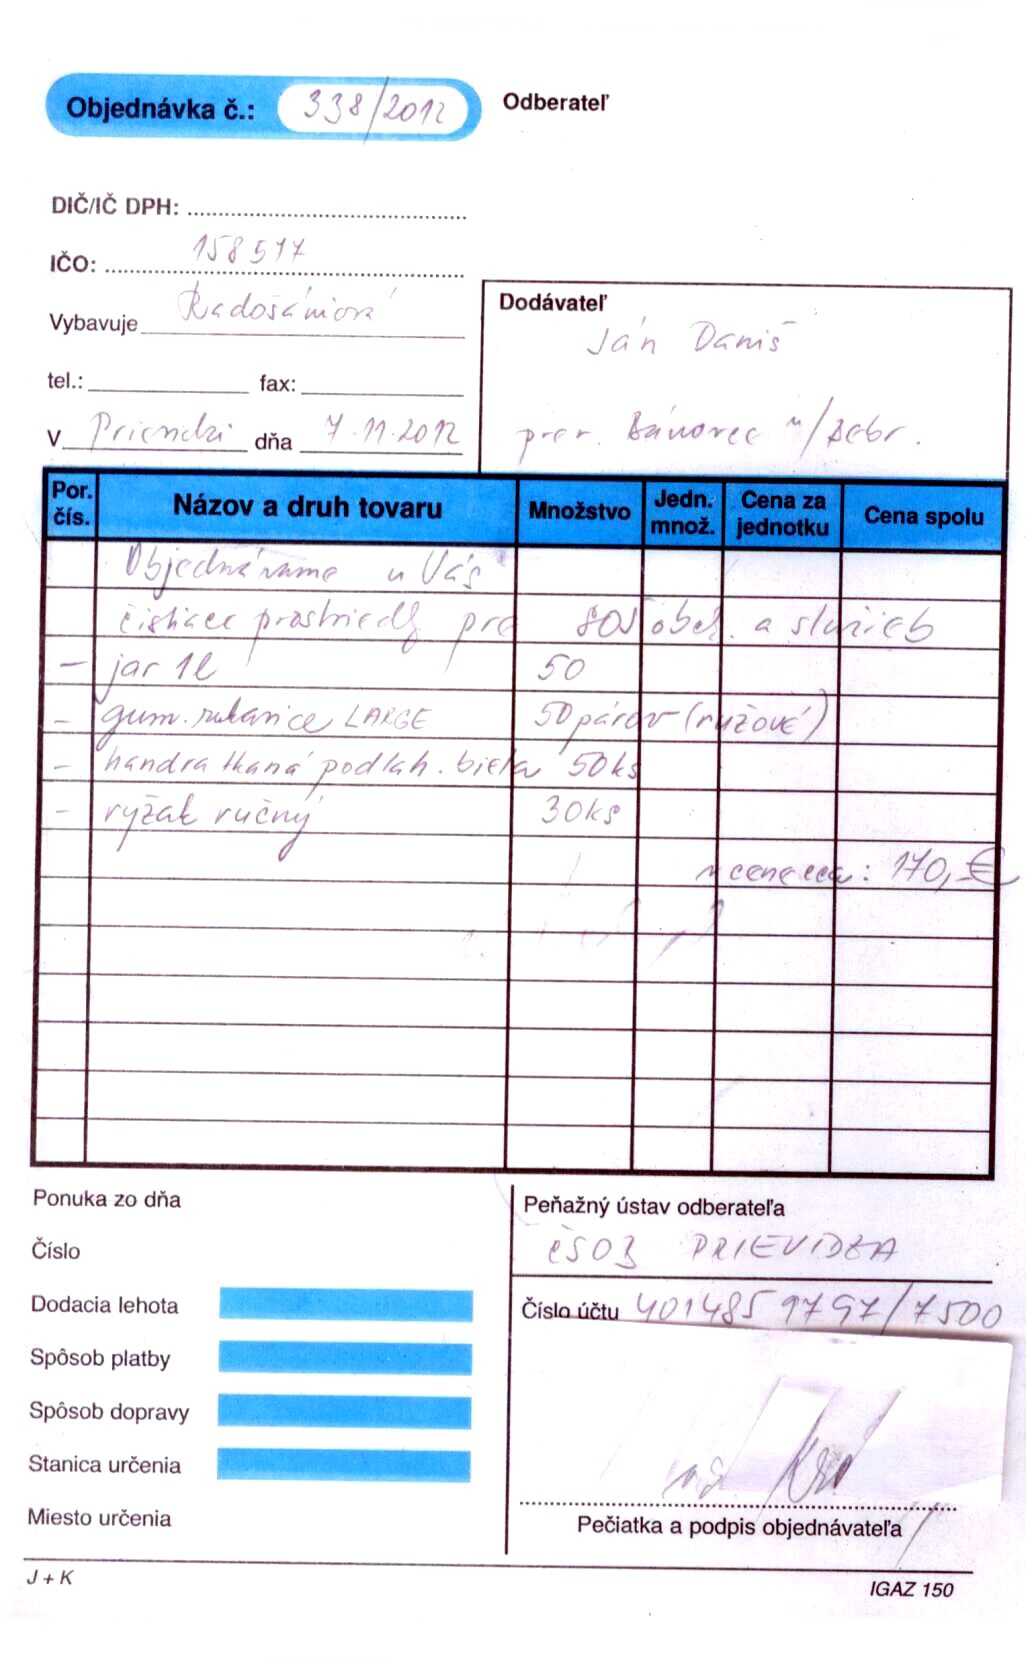 Objednávka č.: 338/2012
Odberateľ
DIČ/IČ DPH:
IČO: 158517
Vybavuje Radošániová
tel.: fax:
V Prievidzi dňa 7.11.2012
Dodávateľ
Ján Daniš
prev. Bánovce n/Bebr.
Por. čís. Názov a druh tovaru Množstvo Jedn. množ. Cena za jednotku Cena spolu
Objednávame u Vás
čistiace prostriedky pre SOŠ obch. a služieb
– jar 1l 50
– gum. rukavice LARGE 50 párov (ružové)
– handra tkaná podlah. biela 50ks
– ryžak ručný 30ks
v cene cca: 170,-€
Ponuka zo dňa
Číslo
Dodacia lehota
Spôsob platby
Spôsob dopravy
Stanica určenia
Miesto určenia
Peňažný ústav odberateľa
ČSOB PRIEVIDZA
Číslo účtu 4014859797/7500
Pečiatka a podpis objednávateľa
J + K
IGAZ 150